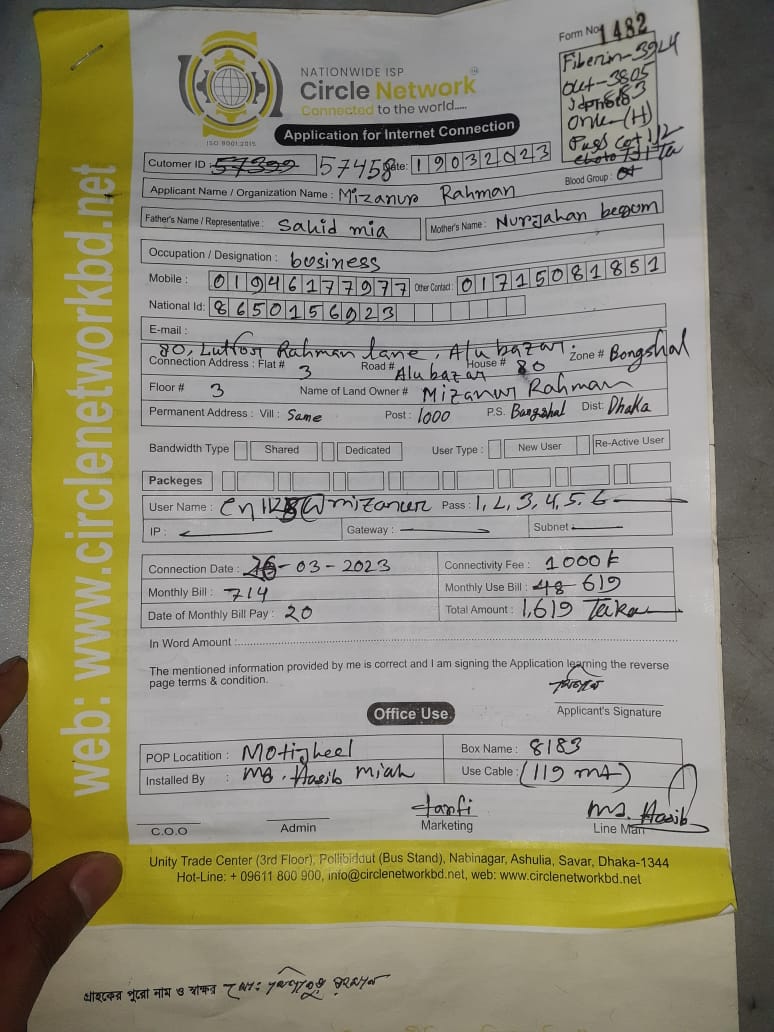 Form No 1482
Fiberin-3924
out-3805
8183
Onu-(H)
NATIONWIDE ISP
Circle Network
Connected to the world.....
ISO 9001:2015
Application for Internet Connection
Cutomer ID : 57399 57458 Date: 19032023
Blood Group :
Applicant Name / Organization Name : Mizanur Rahman
Father's Name / Representative : Sahid mia Mother's Name : Nurjahan begum
Occupation / Designation : business
Mobile : 01946177977 Other Contact : 01715081851
National Id: 8650156923
E-mail :
80, Luttor Rahman lane, Alu bazar.
Connection Address : Flat # 3 Road # Alu bazar House # 80 Zone # Bongshal
Floor # 3 Name of Land Owner # Mizanur Rahman
Permanent Address : Vill : Same Post : 1000 P.S. Bangshal Dist: Dhaka
Bandwidth Type Shared Dedicated User Type : New User Re-Active User
Packeges
User Name : @mizanur Pass : 1, 2, 3, 4, 5, 6
IP : Gateway : Subnet
Connection Date : -03-2023 Connectivity Fee : 1000
Monthly Bill : 714 Monthly Use Bill : 48 619
Date of Monthly Bill Pay : 20 Total Amount : 1,619 Taka
In Word Amount :
The mentioned information provided by me is correct and I am signing the Application learning the reverse
page terms & condition.
Applicant's Signature
Office Use
POP Locatition : Motijheel Box Name : 8183
Installed By : Md. Hasib Miah Use Cable : (119 mt)
C.O.O Admin Marketing Line Man
Md. Hasib
Unity Trade Center (3rd Floor), Pollibiddut (Bus Stand), Nabinagar, Ashulia, Savar, Dhaka-1344
Hot-Line: + 09611 800 900, info@circlenetworkbd.net, web: www.circlenetworkbd.net
web: www.circlenetworkbd.net
গ্রাহকের পুরো নাম ও স্বাক্ষর